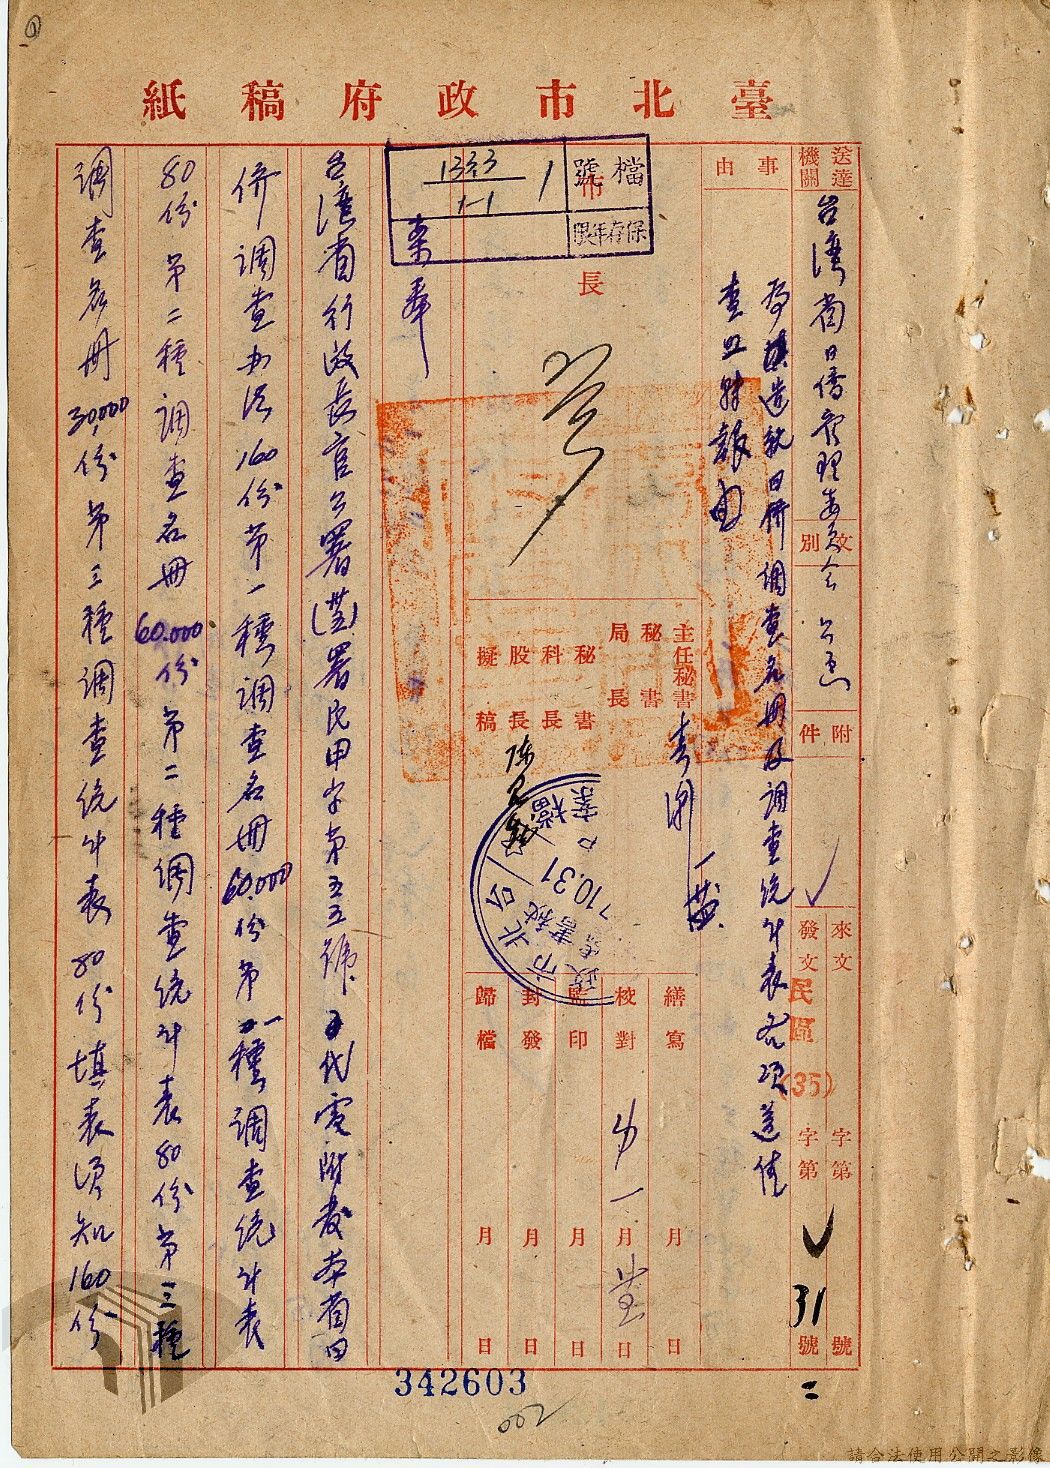 臺北市政府稿紙
送達機關
台灣省日僑管理委員會
文別
公函
附件
來文
字第
號
發文
民區(35)
字第
31
號
事由
為造就日僑調查名冊及調查統計表各項送請
查照轉報由
檔號
1333
1-1
1
保存年限
市長
主任秘書
秘書
局長
秘書
科長
股長
擬稿
繕寫
月
日
校對
月
日
監印
月
日
封發
月
日
歸檔
月
日
10.31
案奉
台灣省行政長官公署署民甲字第五五號代電附發本省日
僑調查办法160份第一種調查名冊60,000份第一種調查統計表
80份第二種調查名冊60,000份第二種調查統計表80份第三種
調查名冊30,000份第三種調查統計表80份填表須知160份
342603
002
請合法使用公開之影像